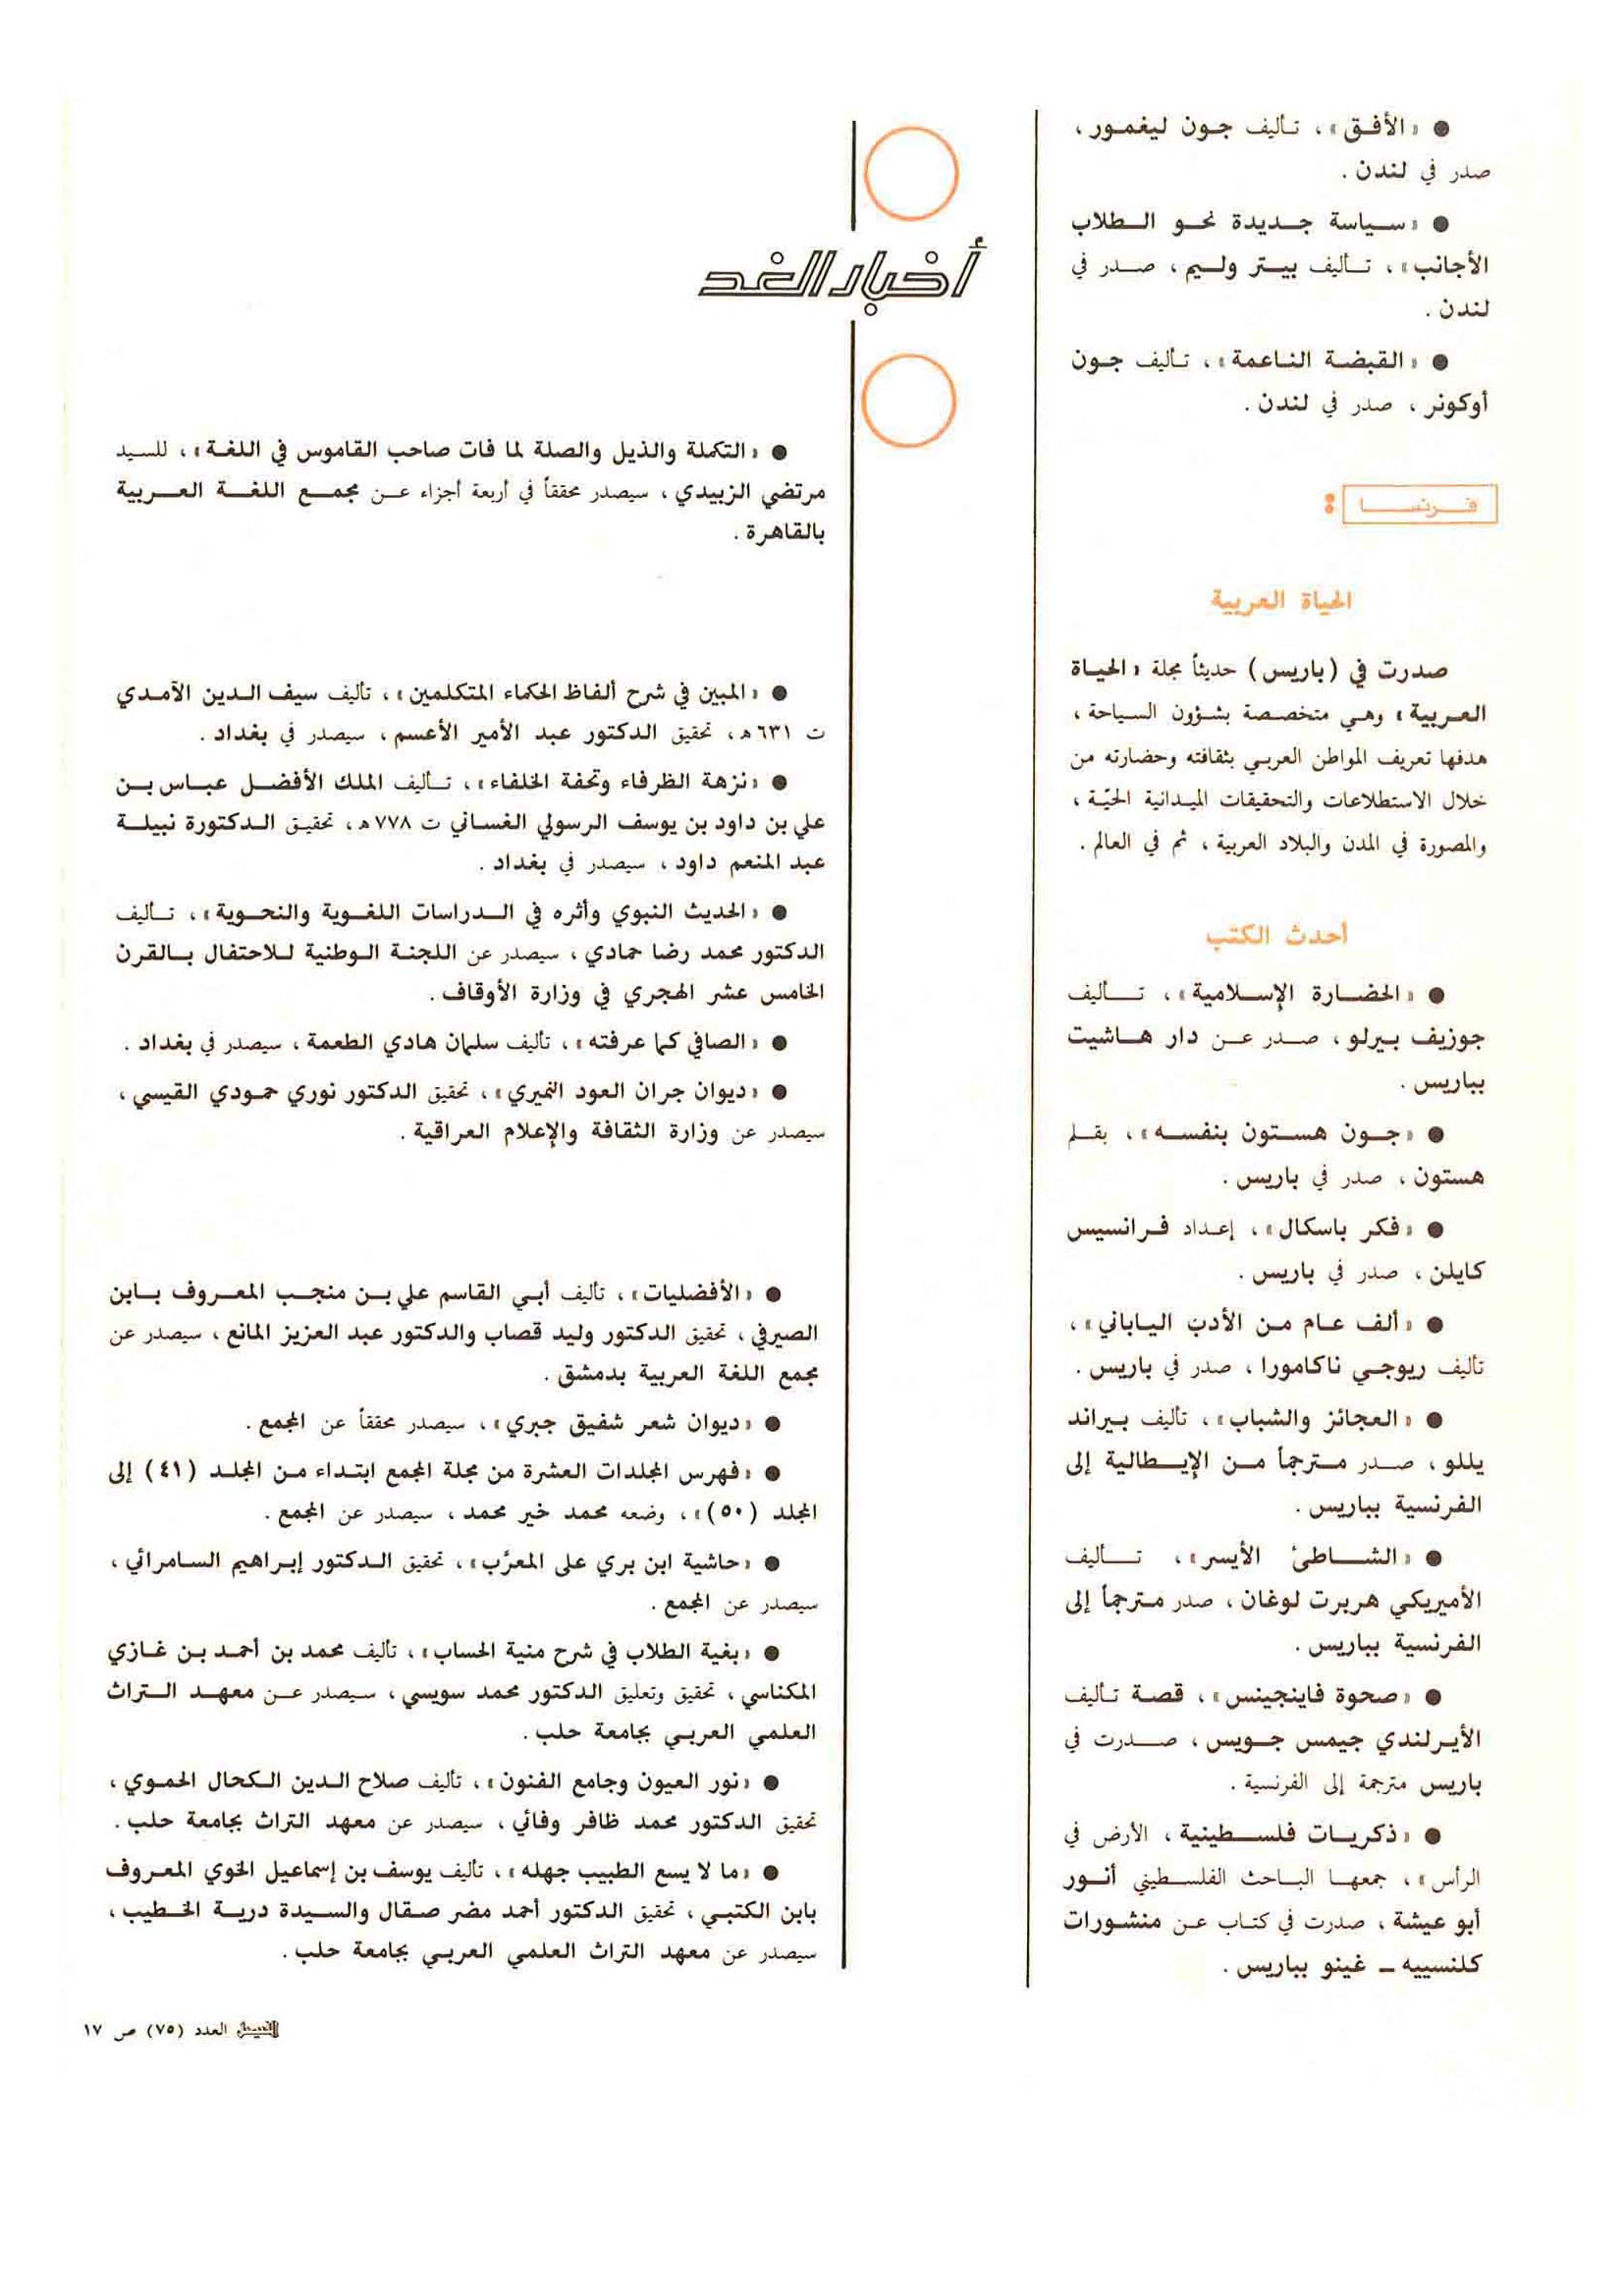 ● «الأفق»، تأليف جون ليغمور،
صدر في لندن.
● «سياسة جديدة نحو الطلاب
الأجانب»، تأليف بيتر وليم، صدر في
لندن.
● «القبضة الناعمة»، تأليف جون
أوكونر، صدر في لندن.
فرنسا :
الحياة العربية
صدرت في (باريس) حديثاً مجلة «الحياة
العربية» وهي متخصصة بشؤون السياحة،
هدفها تعريف المواطن العربي بثقافته وحضارته من
خلال الاستطلاعات والتحقيقات الميدانية الحيّة،
والمصورة في المدن والبلاد العربية، ثم في العالم.
أحدث الكتب
● «الحضارة الإسلامية»، تأليف
جوزيف بيرلو، صدر عن دار هاشيت
بباريس.
● «جون هستون بنفسه»، بقلم
هستون، صدر في باريس.
● «فكر باسكال»، إعداد فرانسيس
كايلن، صدر في باريس.
● «ألف عام من الأدب الياباني»،
تأليف ريوجي ناكامورا، صدر في باريس.
● «العجائز والشباب»، تأليف بيراند
يللو، صدر مترجماً من الإيطالية إلى
الفرنسية بباريس.
● «الشاطئ الأيسر»، تأليف
الأميريكي هربرت لوغان، صدر مترجماً إلى
الفرنسية بباريس.
● «صحوة فاينجينس»، قصة تأليف
الأيرلندي جيمس جويس، صدرت في
باريس مترجمة إلى الفرنسية.
● «ذكريات فلسطينية، الأرض في
الرأس»، جمعها الباحث الفلسطيني أنور
أبو عيشة، صدرت في كتاب عن منشورات
كلنسييه ـ غينو بباريس.
أخبار الغد
● «التكملة والذيل والصلة لما فات صاحب القاموس في اللغة»، للسيد
مرتضي الزبيدي، سيصدر محققاً في أربعة أجزاء عن مجمع اللغة العربية
بالقاهرة.
● «المبين في شرح ألفاظ الحكماء المتكلمين»، تأليف سيف الدين الآمدي
ت ٦٣١هـ، تحقيق الدكتور عبد الأمير الأعسم، سيصدر في بغداد.
● «نزهة الظرفاء وتحفة الخلفاء»، تأليف الملك الأفضل عباس بن
علي بن داود بن يوسف الرسولي الغساني ت ٧٧٨هـ، تحقيق الدكتورة نبيلة
عبد المنعم داود، سيصدر في بغداد.
● «الحديث النبوي وأثره في الدراسات اللغوية والنحوية»، تأليف
الدكتور محمد رضا حمادي، سيصدر عن اللجنة الوطنية للاحتفال بالقرن
الخامس عشر الهجري في وزارة الأوقاف.
● «الصافي كما عرفته»، تأليف سلمان هادي الطعمة، سيصدر في بغداد.
● «ديوان جران العود النميري»، تحقيق الدكتور نوري حمودي القيسي،
سيصدر عن وزارة الثقافة والإعلام العراقية.
● «الأفضليات»، تأليف أبي القاسم علي بن منجب المعروف بابن
الصيرفي، تحقيق الدكتور وليد قصاب والدكتور عبد العزيز المانع، سيصدر عن
مجمع اللغة العربية بدمشق.
● «ديوان شعر شفيق جبري»، سيصدر محققاً عن المجمع.
● «فهرس المجلدات العشرة من مجلة المجمع ابتداء من المجلد (٤١) إلى
المجلد (٥٠)»، وضعه محمد خير محمد، سيصدر عن المجمع.
● «حاشية ابن بري على المعرَّب»، تحقيق الدكتور إبراهيم السامرائي،
سيصدر عن المجمع.
● «بغية الطلاب في شرح منية الحساب»، تأليف محمد بن أحمد بن غازي
المكناسي، تحقيق وتعليق الدكتور محمد سويسي، سيصدر عن معهد التراث
العلمي العربي بجامعة حلب.
● «نور العيون وجامع الفنون»، تأليف صلاح الدين الكحال الحموي،
تحقيق الدكتور محمد ظافر وفائي، سيصدر عن معهد التراث بجامعة حلب.
● «ما لا يسع الطبيب جهله»، تأليف يوسف بن إسماعيل الخوي المعروف
بابن الكتبي، تحقيق الدكتور أحمد مضر صقال والسيدة درية الخطيب،
سيصدر عن معهد التراث العلمي العربي بجامعة حلب.
الفيصل العدد (٧٥) ص ١٧